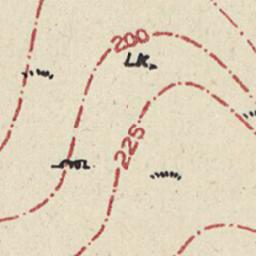 200
LK.
225